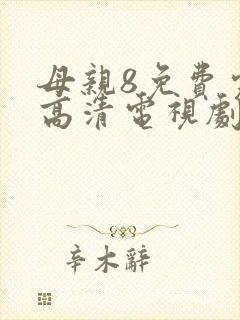 母親8免費
高清電視劇
辛木辭